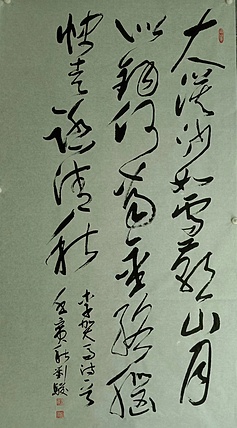 大漠沙如雪燕山月
似钩何当金络脑
快走踏清秋
李贺马诗一首